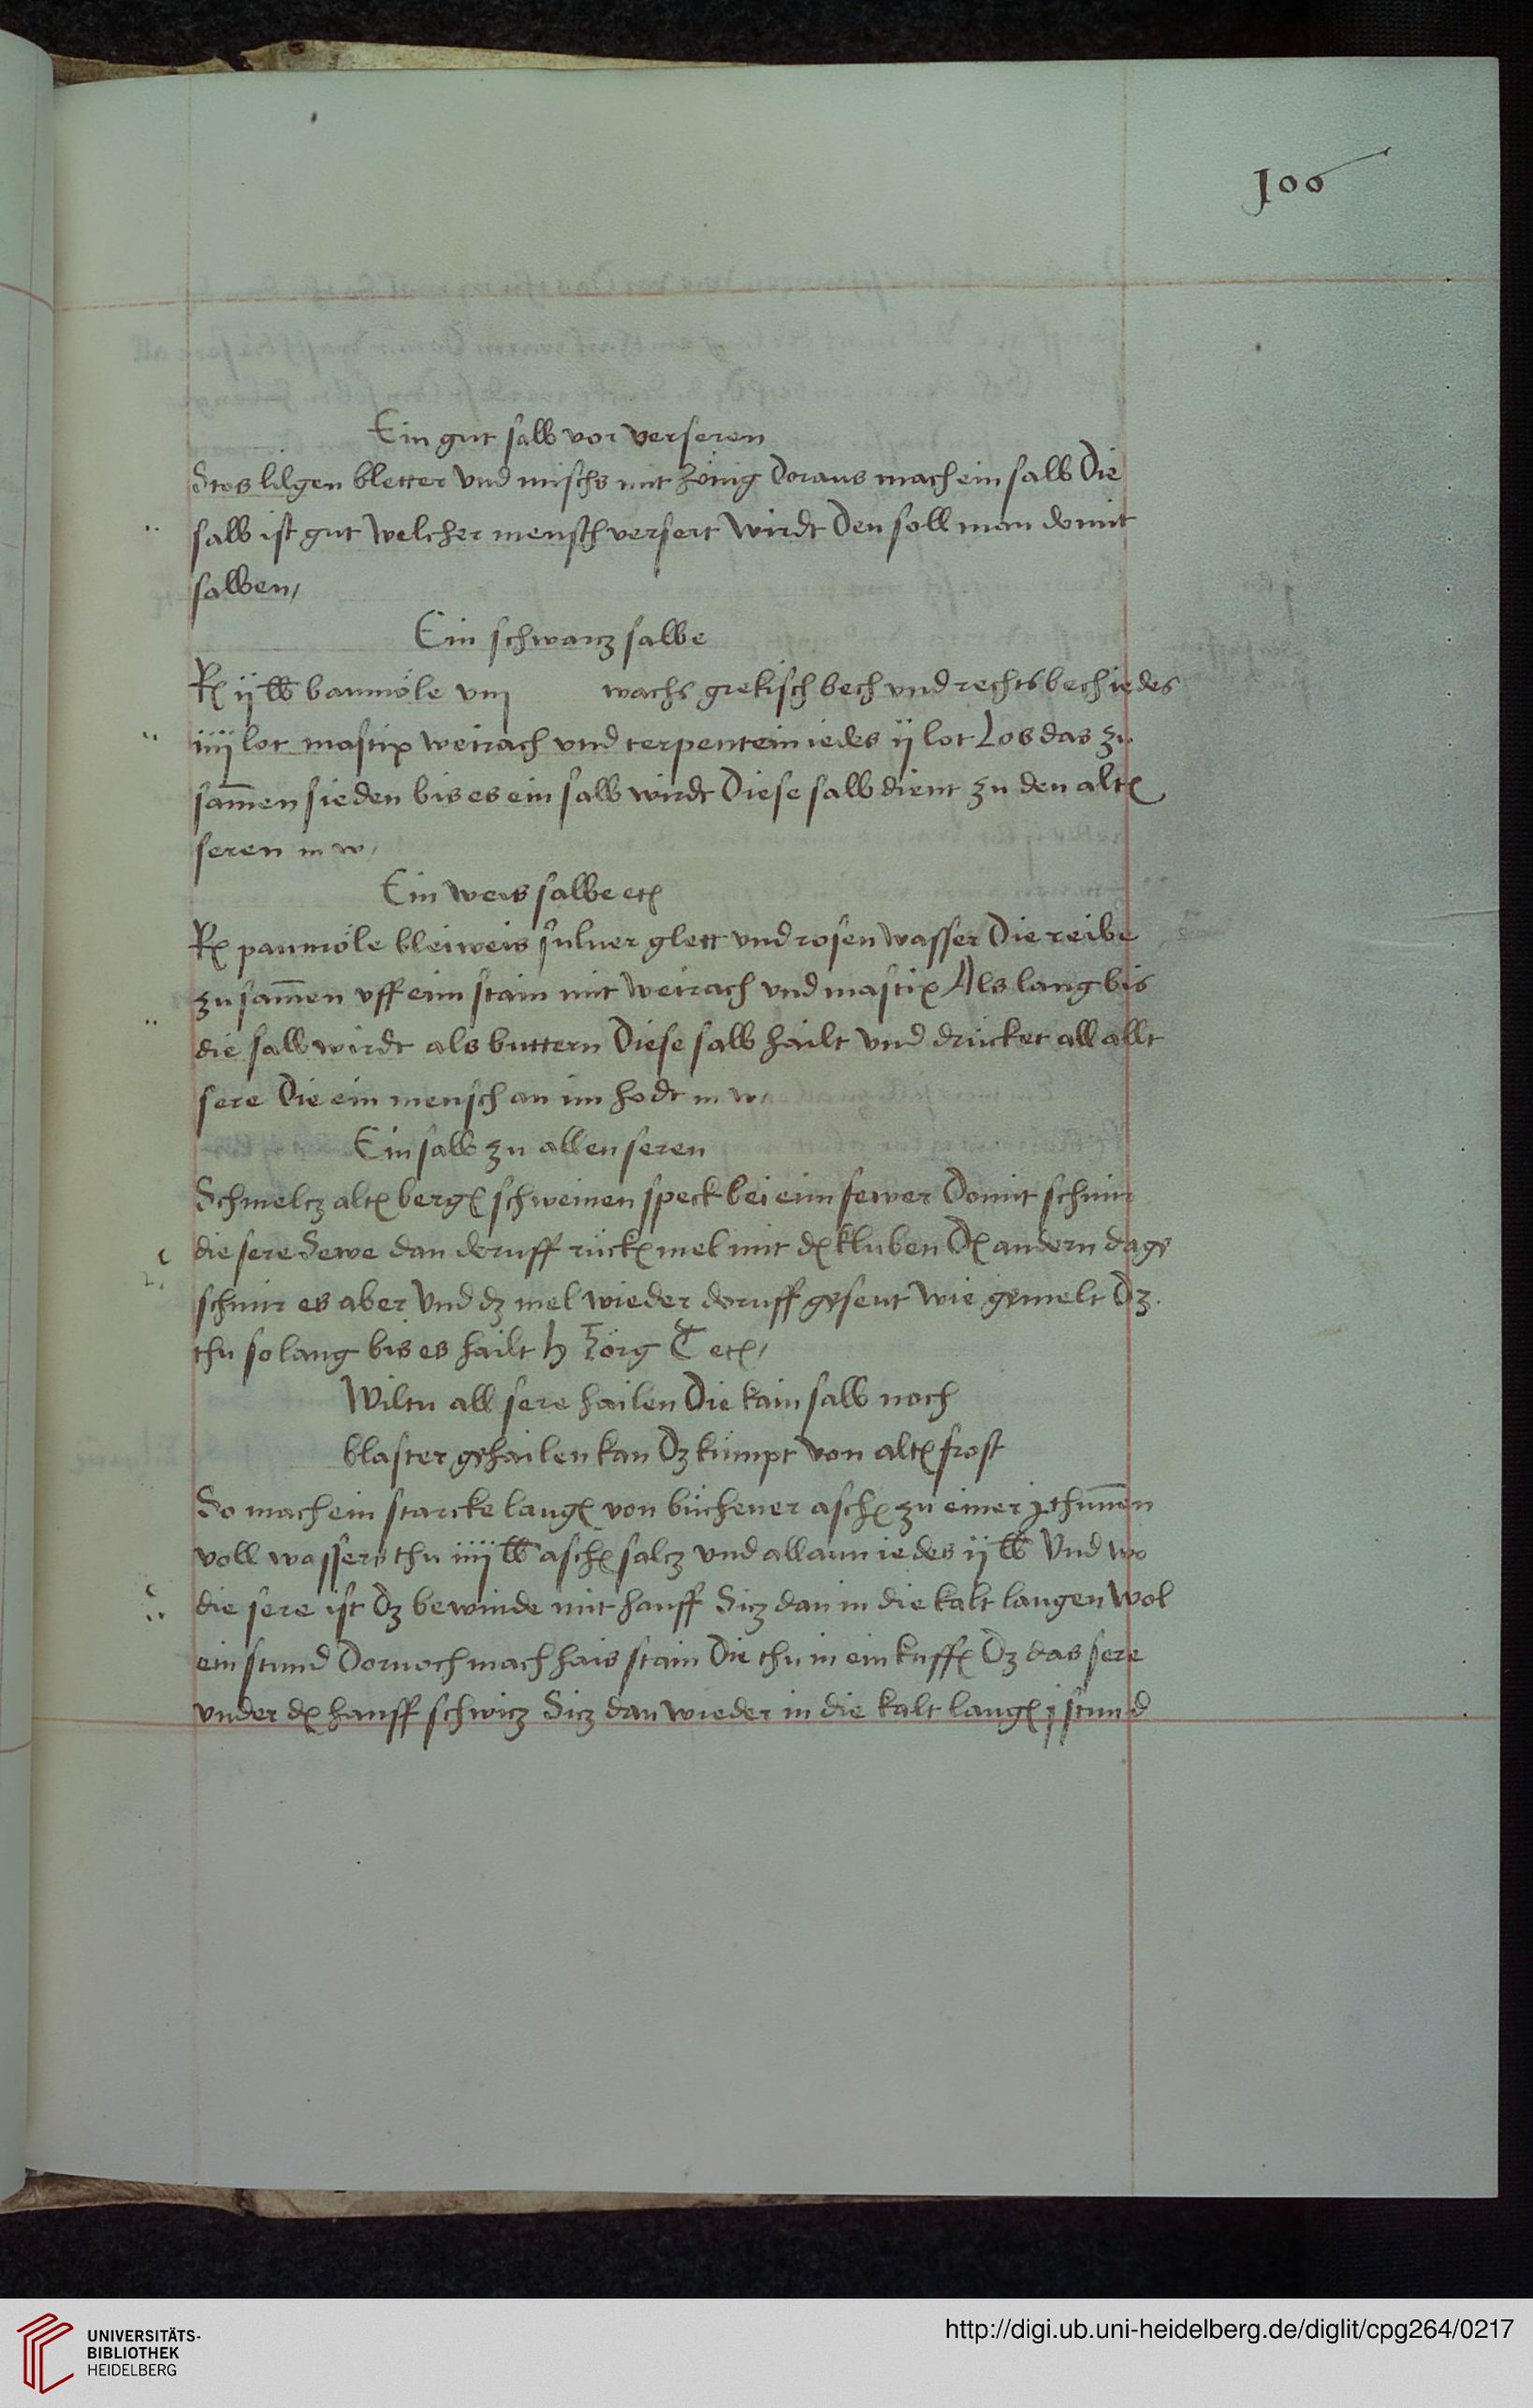 100
Ein gut salb vor verseren
Stos lilgen bletter Vnd mischs mit honig Doraus mach ein salb Die
salb ist gut Welcher mensch versert Wirdt Den soll man domit
salben /
Ein schwarcz salbe
Rx ij lb baumöle vnj wachs grekisch bech vnd rechts bech iedes
iiij lot mastix weirach vnd terpentein iedes ij lot Los das zu
sam̄en sieden bis es ein salb wirdt Diese salb dient zu den altꝭ
seren
Ein Weis salbe etꝭ
Rx paumöle bleiweis siluer glett vnd rosen Wasser Die reibe
zu sam̄en vff eim stain mit Weirach vnd mastix Als lang bis
die salb wirdt als buttern Diese salb hailt Vnd drücket all allt
sere Die ein mensch an im hodt
Ein salb zu allen seren
Schmelcz altꝭ bergꝭ schweinen speck bei eim fewer Domit schmir
die sere Sewe dan deruff rückꝭ mel mit dꝭ kluben Dꝭ andern dags
schmir es aber Vnd dz mel wieder doruff geseut Wie gemelt Dz
thu so lang bis es hailt h Jörg T etꝭ /
Wiltu all sere hailen Die kain salb noch
blaster gehailen kan Dz kümpt Von altꝭ frost
So mach ein starcke laugꝭ von büchener aschꝭ zu einer j thunnen
voll wassers thu iiij lb aschꝭ salcz vnd allaun iedes ij lb Vnd wo
die sere ist Dz bewinde mit hanff Sicz dan in die kalt laugen Wol
ein stund Dornoch mach hais stain Die thu in ein kuffꝭ Dz das sere
vnder dꝭ hanff schwicz Sicz dan wieder in die kalt laugꝭ j stund
UNIVERSITÄTS-
BIBLIOTHEK
HEIDELBERG
http://digi.ub.uni-heidelberg.de/diglit/cpg264/0217